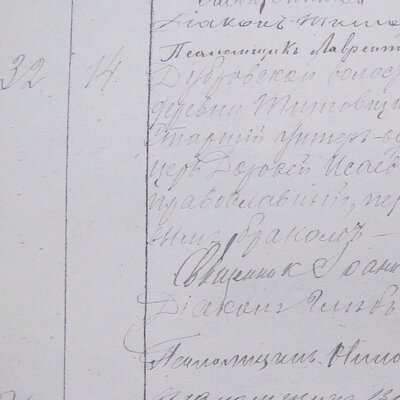 Діаконъ
Псаломщикъ Лаврент
32 14 Дубровской волос
деревни Титовщи
Старшій Унтеръ-о
церъ Дорофей Исаев
православный, пер
вымъ бракомъ —
Священник Іоанн
Діакон Глѣбъ
Псаломщикъ